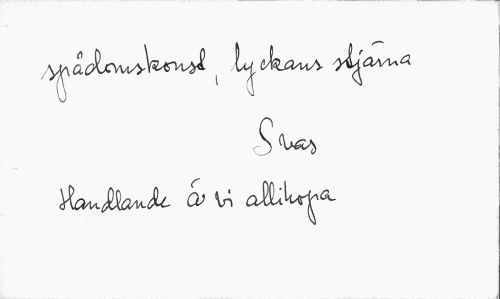 spådomskonst, lyckans stjärna
Svas
Handlande ä vi allihopa